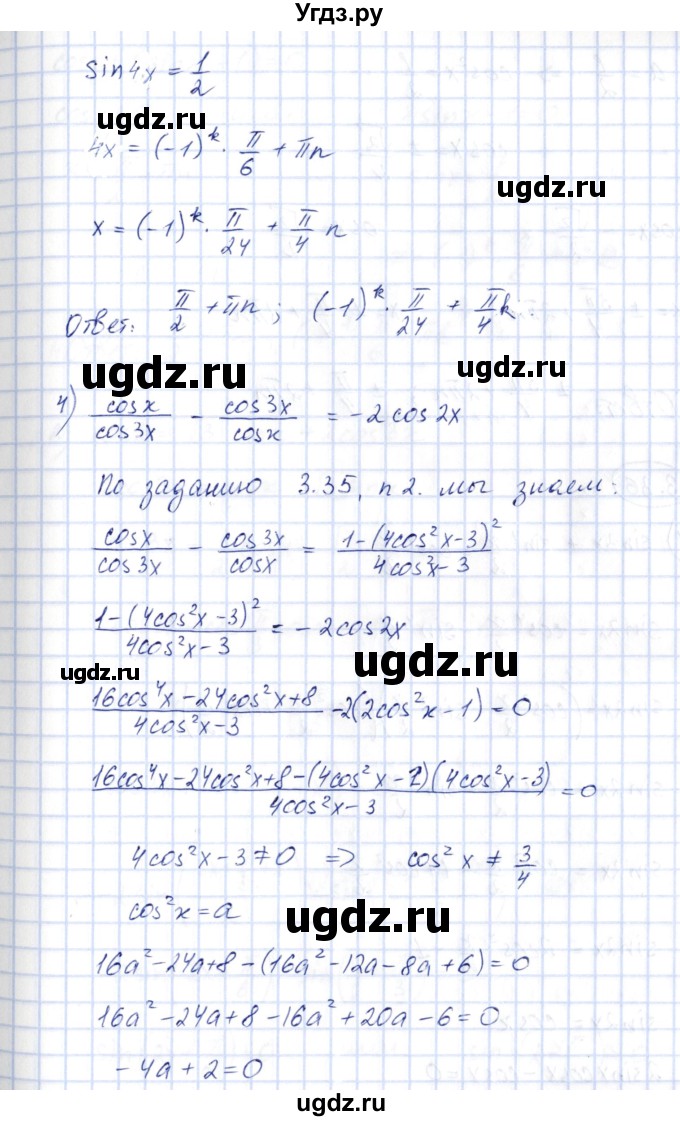 Угдз.ру
sin4x = 1/2
ugdz.ru
4x = (-1)^k · π/6 + πn
ugdz.ru
x = (-1)^k · π/24 + π/4 n
Ответ: π/2 + πn ; (-1)^k · π/24 + π/4 k.
ugdz.ru
ugdz.ru
4) cosx/cos3x - cos3x/cosx = -2cos2x
По заданию 3.35, п2. мы знаем:
cosx/cos3x - cos3x/cosx = 1-(4cos²x-3)²/4cos²x-3
1-(4cos²x-3)²/4cos²x-3 = -2cos2x
ugdz.ru
ugdz.ru
16cos⁴x-24cos²x+8/4cos²x-3 -2(2cos²x-1)=0
16cos⁴x-24cos²x+8-(4cos²x-2)(4cos²x-3)/4cos²x-3 =0
4cos²x-3≠0 => cos²x ≠ 3/4
cos²x=a
ugdz.ru
16a²-24a+8-(16a²-12a-8a+6)=0
16a²-24a+8-16a²+20a-6=0
-4a+2=0
ugdz.ru